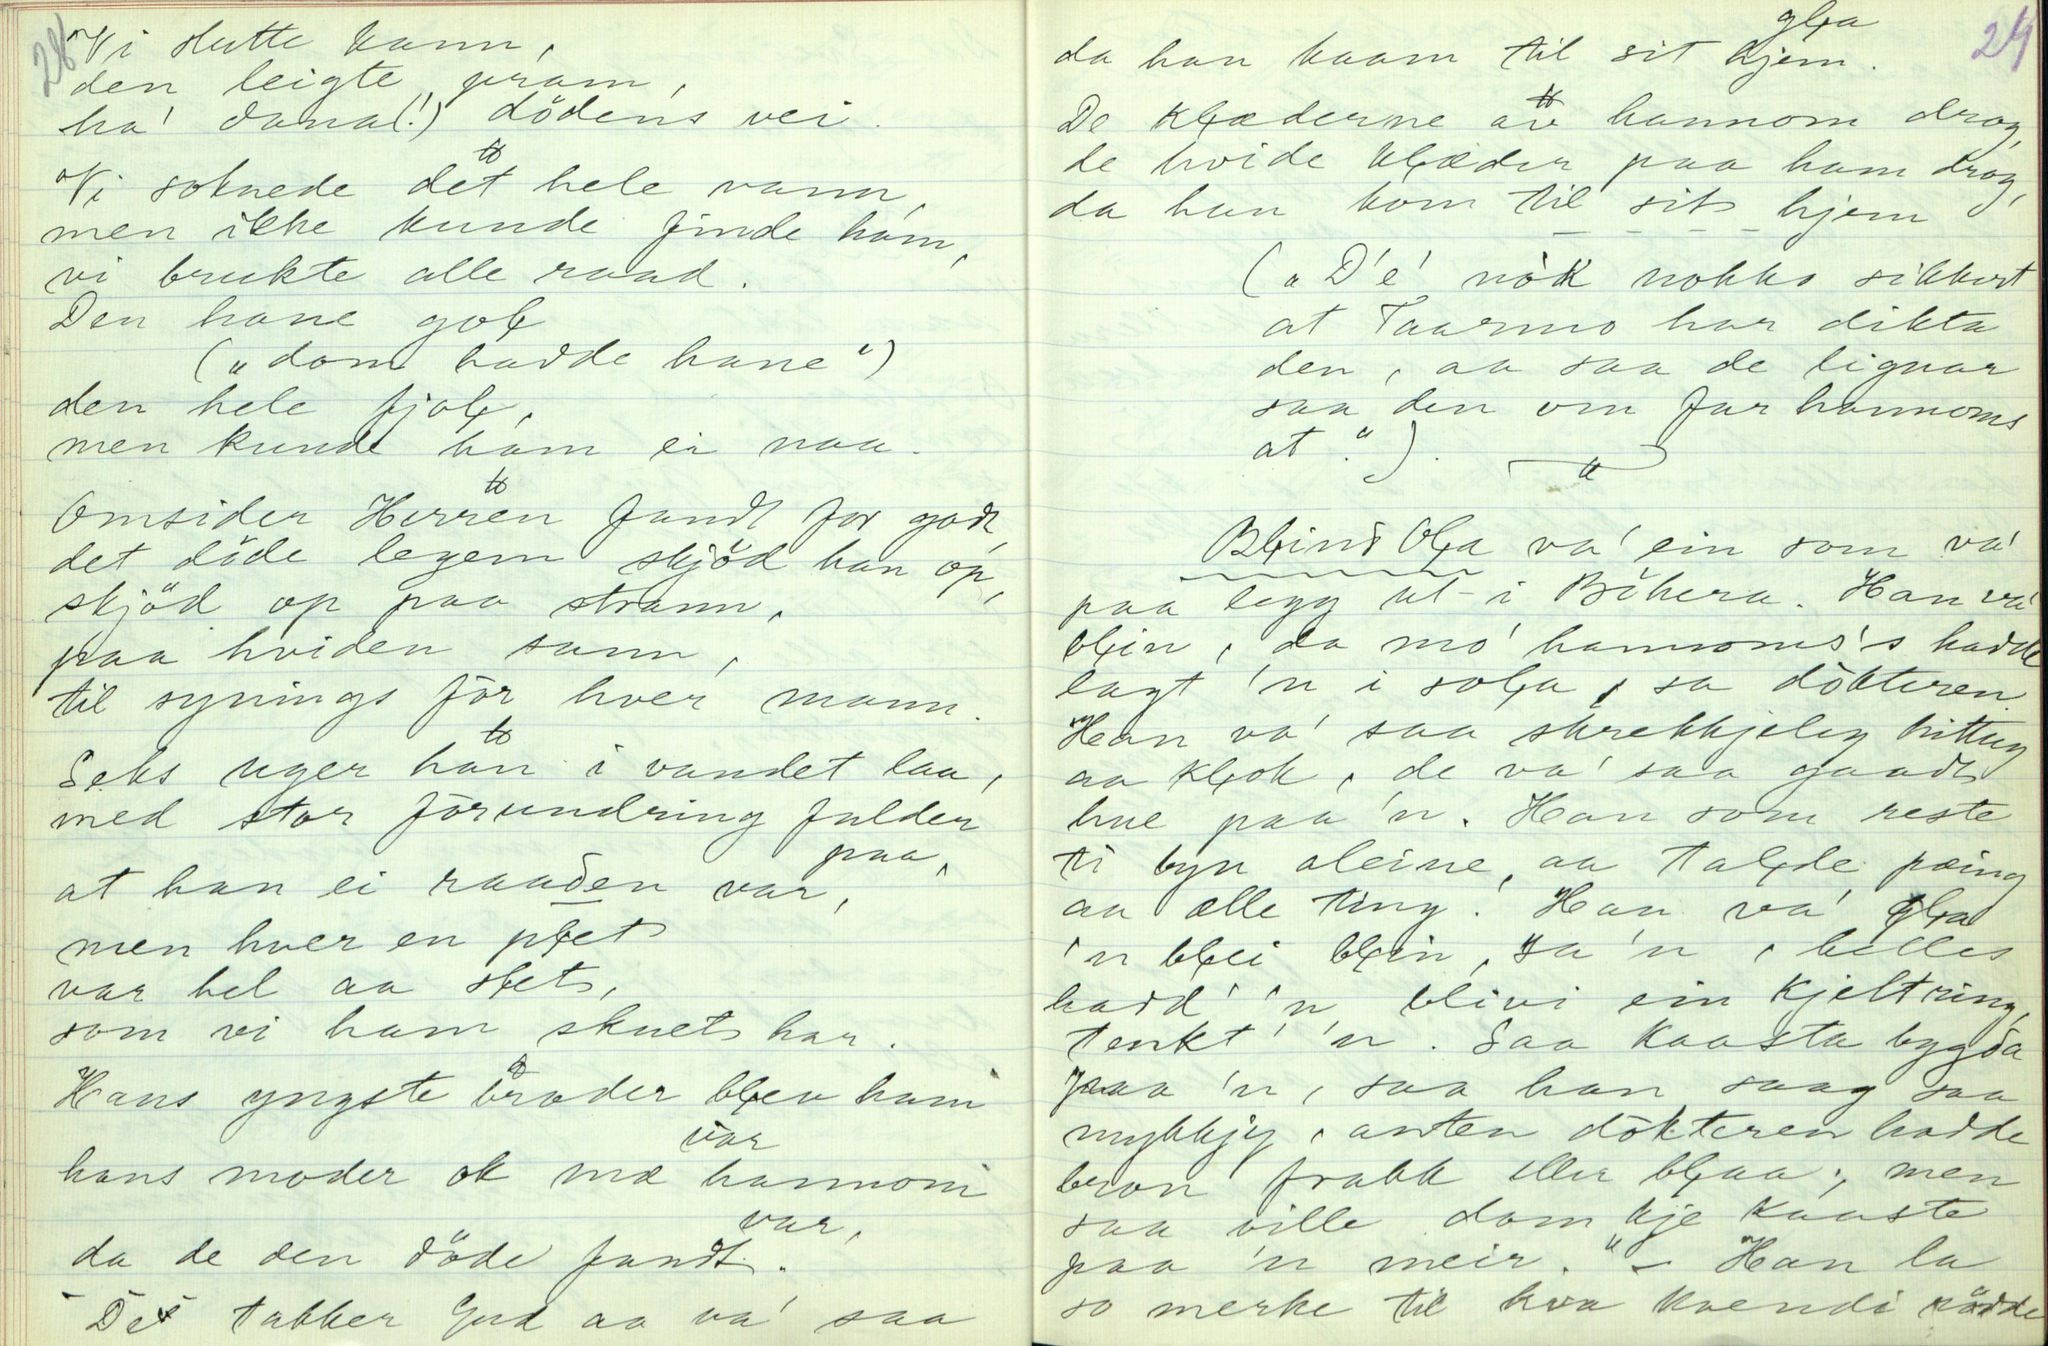 28
Vi slutte kann,
den leigte pram,
ha' dana(!) dödens vei.
Vi soknede det hele vann,
men ikke kunde finde ham,
vi brukte alle raad.
Den hane goł
("dom hadde hane")
den hele fjoł,
men kunde ham ei naa.
Omsider Herren fandt for godt,
det döde legem skjöd han op,
skjöd op paa strann,
paa hviden sann,
til synings för hver mann.
Seks uger han i vandet laa,
med stor förundring falder
paa,
at han ei raaden var,
men hver en płet
var hel aa słet,
som vi ham skuet har.
Hans yngste broder błev ham
var
hans moder ok mæ hannom
var,
da de den döde fandt.
De takker Gud aa va' saa
24
gła
da han kaam til sit hjem.
De kłæderne av hannom drog,
de hvide kłæder paa ham drog,
da han kom til sit hjem
("D'e' nòk nokko sikkert
at Taarmo har dikta
den, aa saa de lignar
saa den om far hannoms
at".)
Błind Oła va' ein som va'
paa legg ut i Bökera. Han va'
błin, da mo' hannoms's hadde
lagt 'n i soła, sa dökteren.
Han va' saa skrekkjeleg hittug
aa kłok, de va' saa gaadt
hue paa 'n. Han som reste
ti byn aleine, aa tałde pæing
aa alle ting. Han va' gła
'n błei błin, sa 'n, helles
hadd' 'n blivi ein kjeltring,
tenkt' 'n. Saa kaasta bygda
paa 'n, saa han saag saa
mykkjy, anten dökteren hadde
bron frakk eller błaa; men
saa ville dom kje kaaste
paa 'n meir." – Han la
so merke til kva kvendi rödde